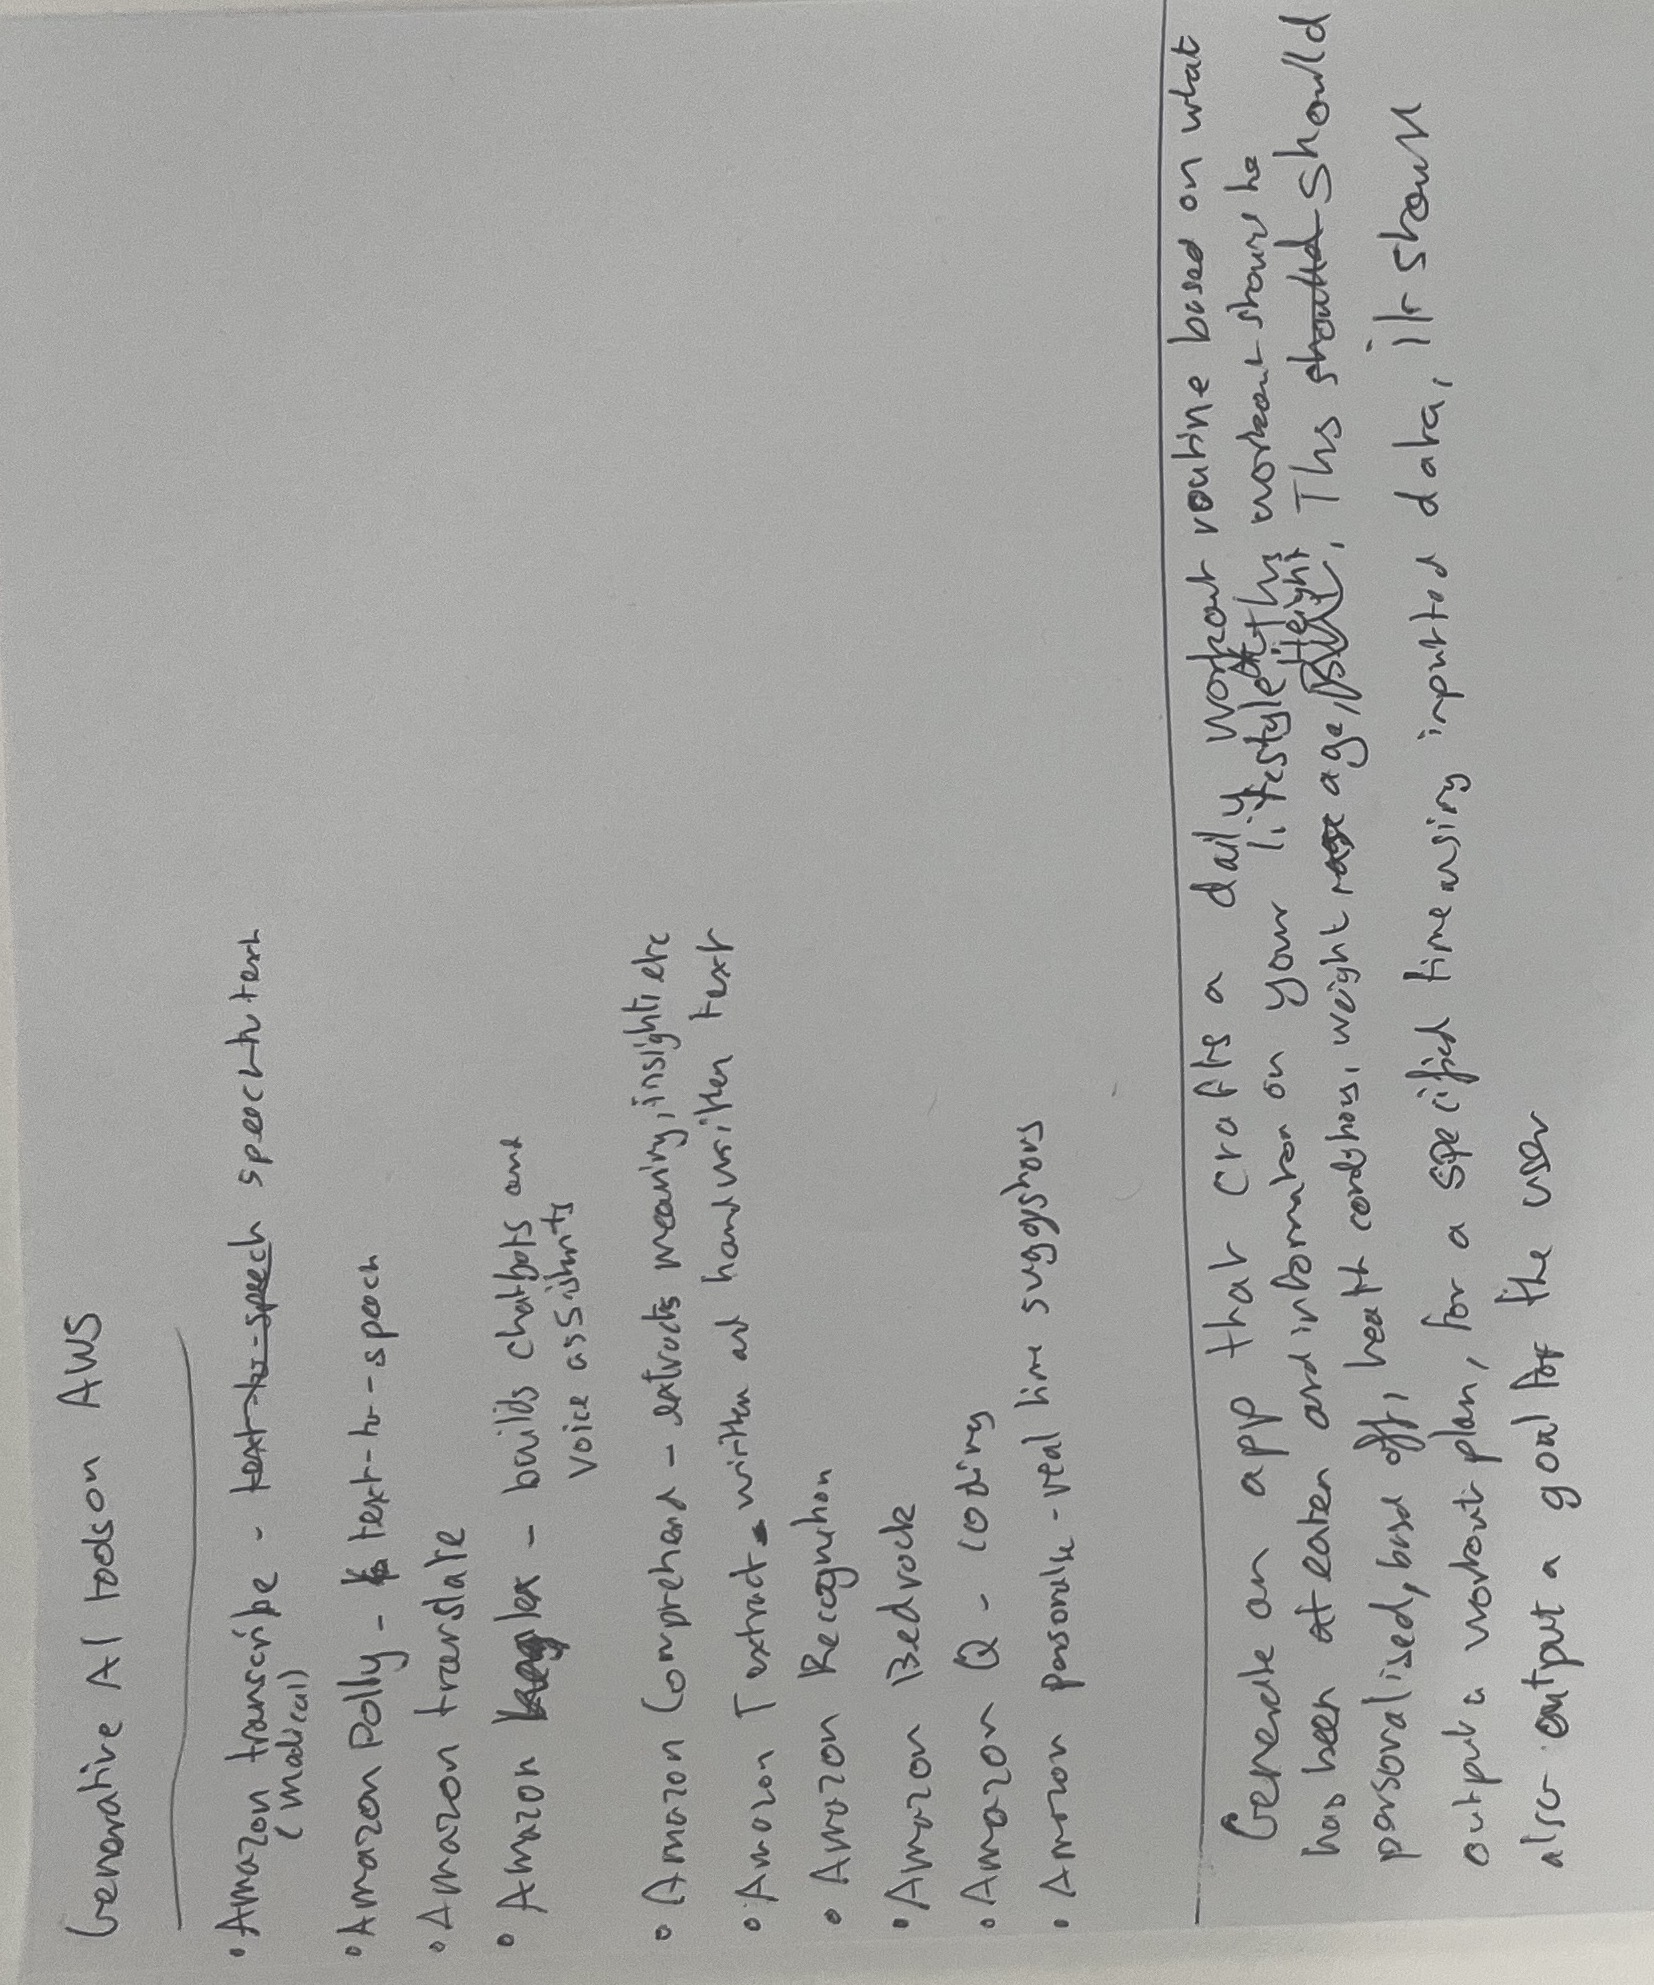 Generative AI tools on AWS
• Amazon transcribe - text-to-speech speech to text
(medical)
• Amazon Polly - text-to-speech
• Amazon translate
• Amazon lex - builds chatbots and
voice assistants
• Amazon Comprehend - extracts meaning, insights etc
• Amazon Textract - written and handwritten text
• Amazon Recognition
• Amazon Bedrock
• Amazon Q - coding
• Amazon personalise - real time suggestions
Generate an app that crafts a daily workout routine based on what
has been eaten and information on your lifestyle. This workout should be
personalised, based off, health conditions, weight age, Height. This should should
output a workout plan, for a specified time using inputted data, it should
also output a goal for the user